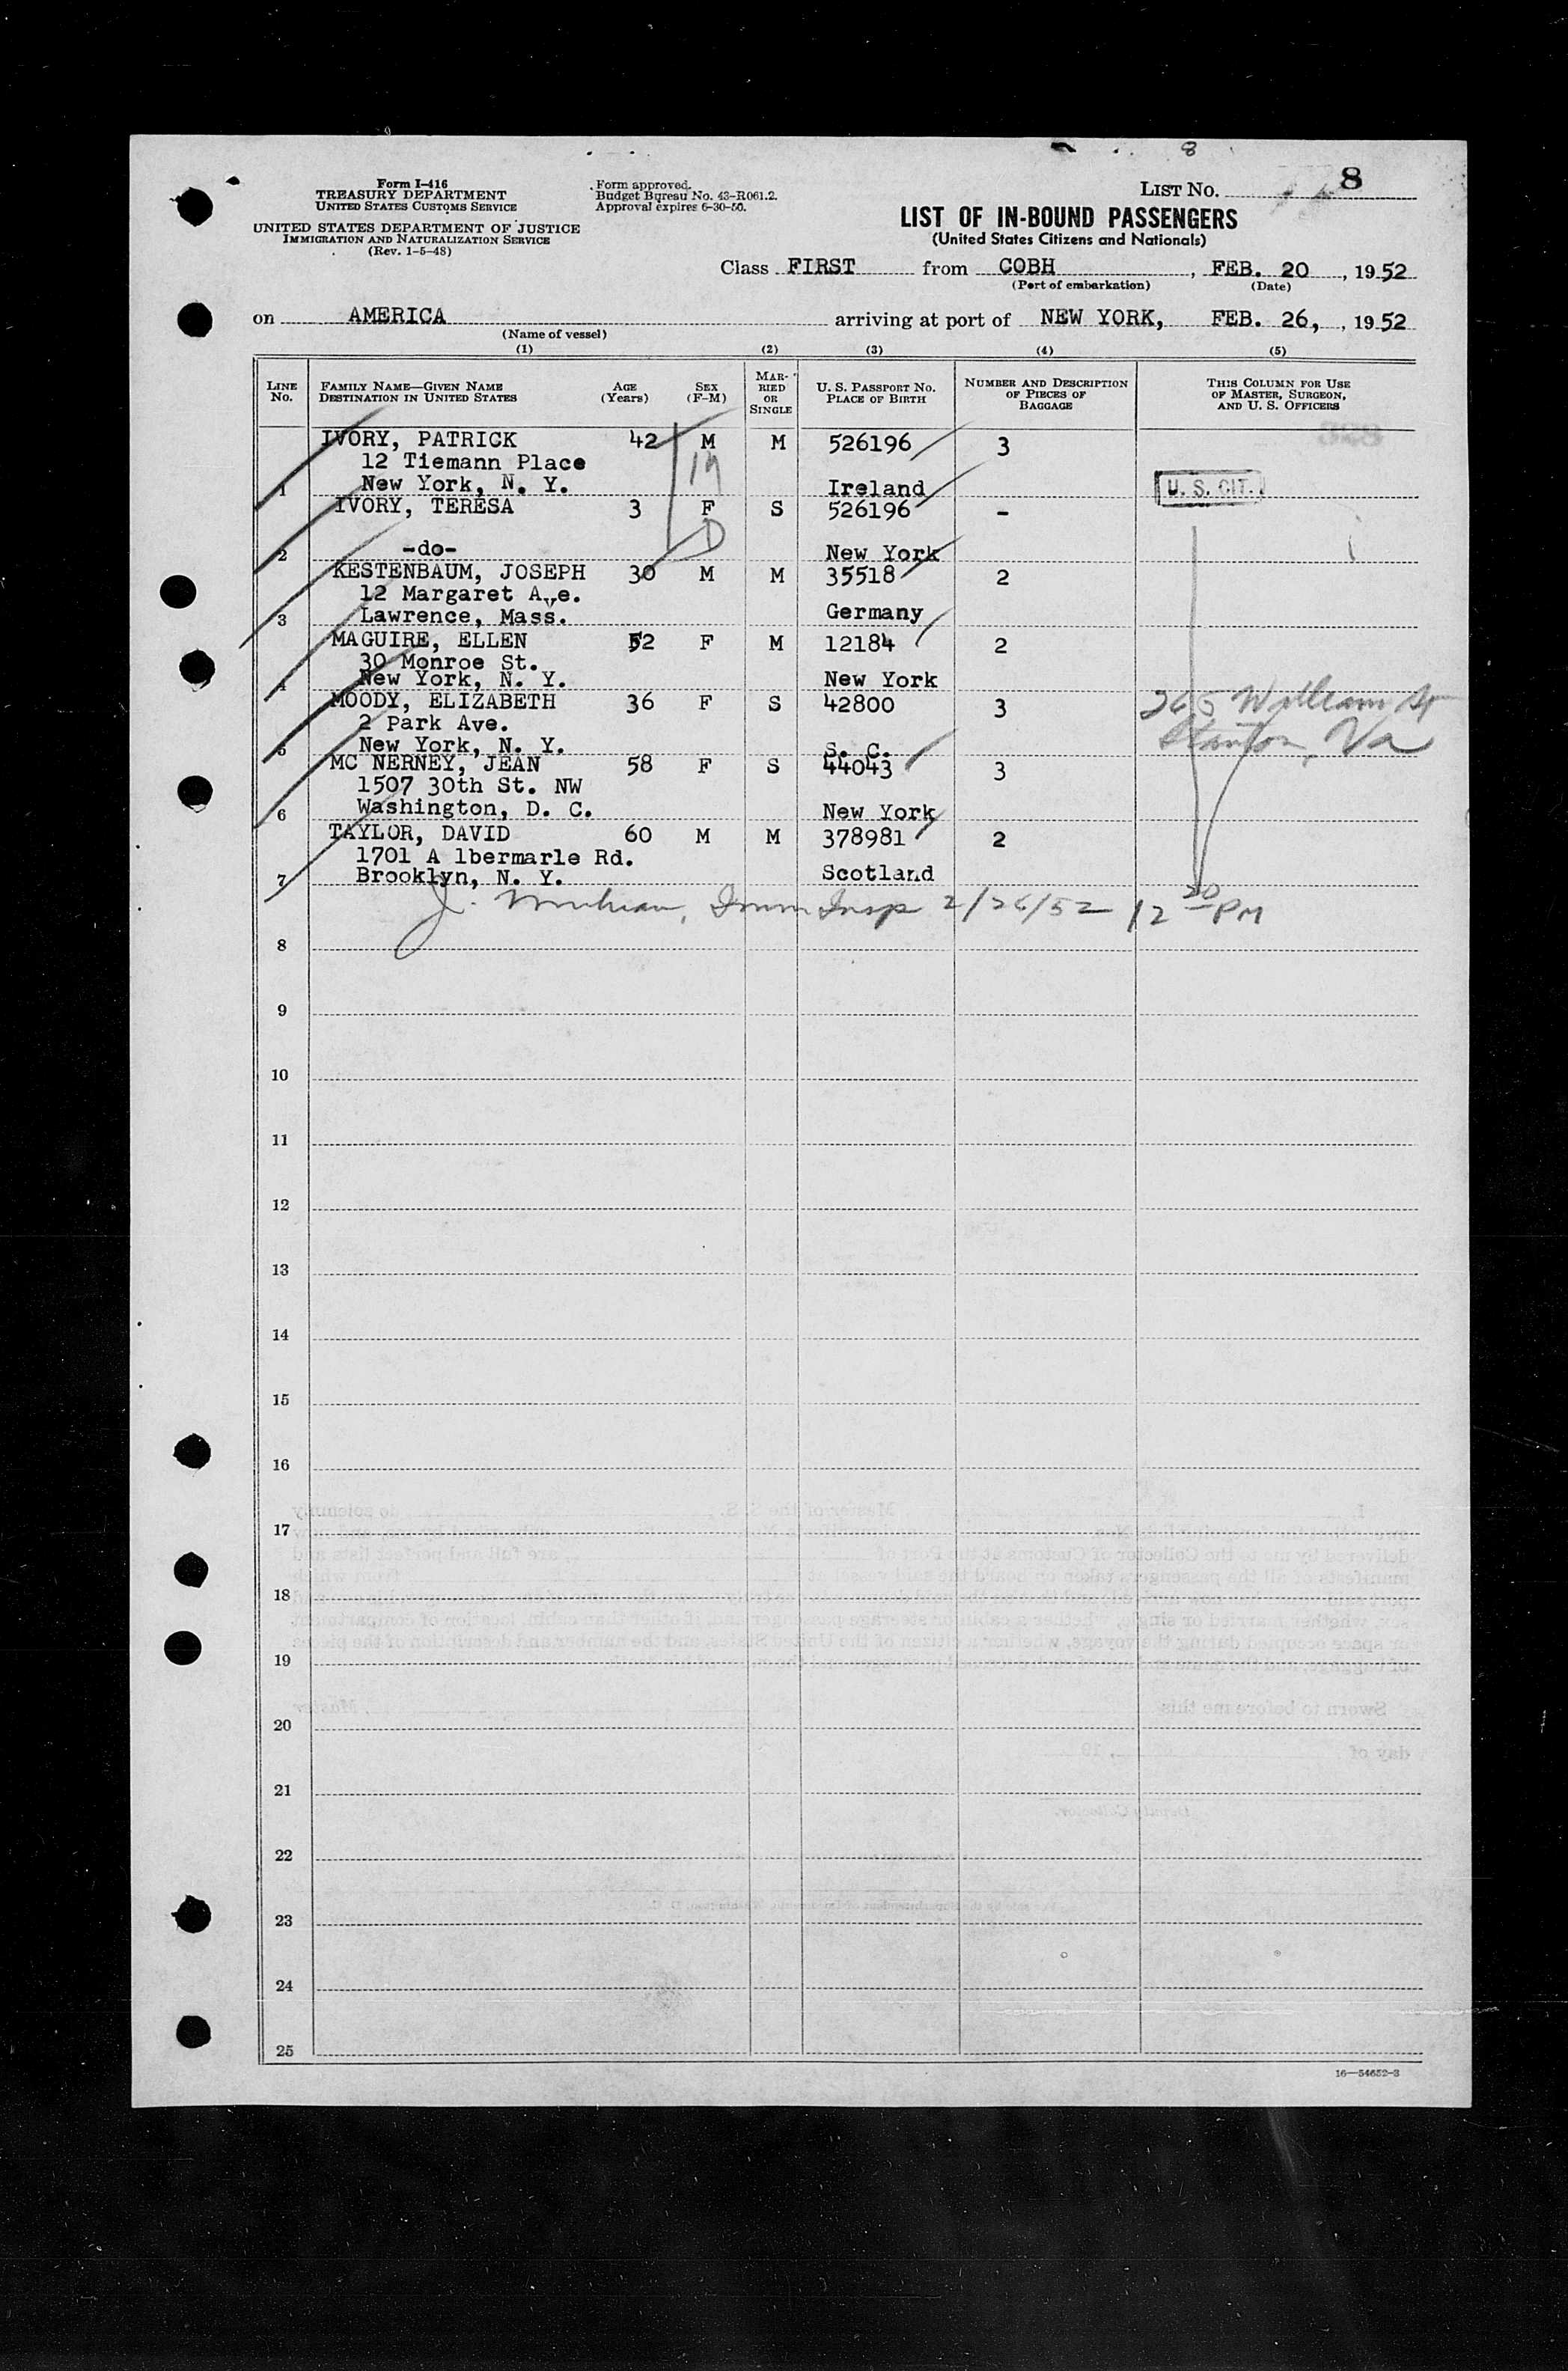 8
Form I-416
TREASURY DEPARTMENT
UNITED STATES CUSTOMS SERVICE
UNITED STATES DEPARTMENT OF JUSTICE
IMMIGRATION AND NATURALIZATION SERVICE
(Rev. 1-5-48)
Form approved.
Budget Bureau No. 43-R061.2.
Approval expires 6-30-50.
LIST NO. 8
LIST OF IN-BOUND PASSENGERS
(United States Citizens and Nationals)
Class FIRST from COBH, FEB. 20, 1952
(Port of embarkation) (Date)
on AMERICA arriving at port of NEW YORK, FEB. 26, , 1952
(Name of vessel)
(1) (2) (3) (4) (5)
LINE NO. FAMILY NAME—GIVEN NAME DESTINATION IN UNITED STATES AGE (Years) SEX (F-M) MARRIED OR SINGLE U. S. PASSPORT NO. PLACE OF BIRTH NUMBER AND DESCRIPTION OF PIECES OF BAGGAGE THIS COLUMN FOR USE OF MASTER, SURGEON, AND U. S. OFFICERS
IVORY, PATRICK 42 M M 526196 3
12 Tiemann Place
1 New York, N. Y. Ireland U. S. CIT.
IVORY, TERESA 3 F S 526196 -
2 -do- New York
KESTENBAUM, JOSEPH 30 M M 35518 2
12 Margaret Ave.
3 Lawrence, Mass. Germany
MAGUIRE, ELLEN 52 F M 12184 2
30 Monroe St.
4 New York, N. Y. New York
MOODY, ELIZABETH 36 F S 42800 3 265 William St
2 Park Ave.
5 New York, N. Y. S. C. Va
MC NERNEY, JEAN 58 F S 44043 3
1507 30th St. NW
6 Washington, D. C. New York
TAYLOR, DAVID 60 M M 378981 2
1701 A lbermarle Rd.
7 Brooklyn, N. Y. Scotland
J. Imm Insp 2/26/52 12 20 PM
8
9
10
11
12
13
14
15
16
17
18
19
20
21
22
23
24
25
16—54652-3